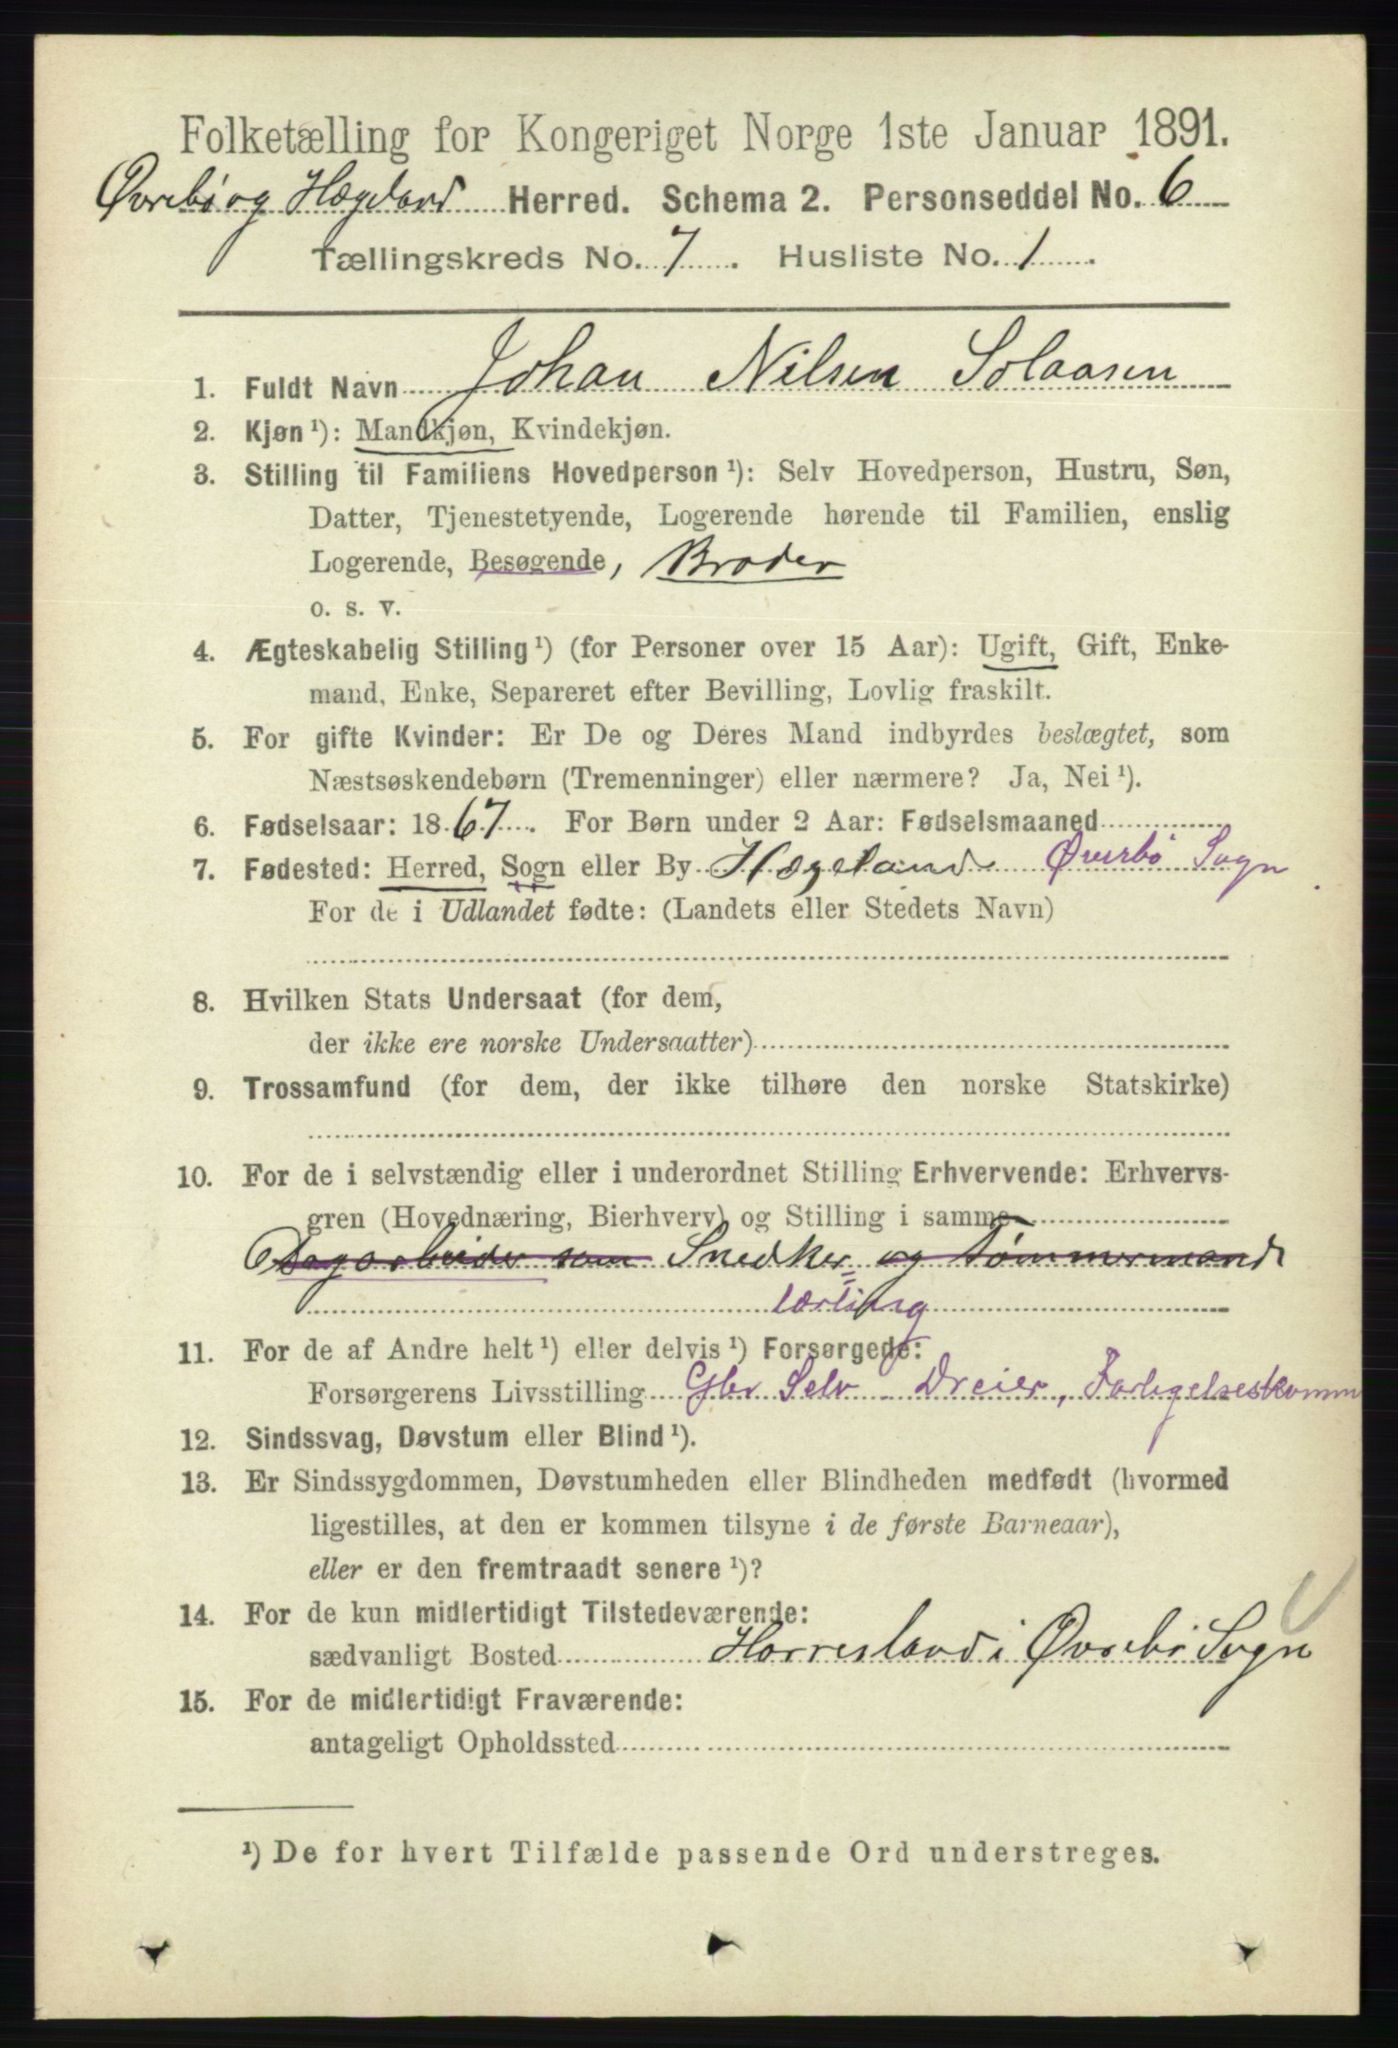 Folketælling for Kongeriget Norge 1ste Januar 1891.
Øvrebø og Hægeland Herred. Schema 2. Personseddel No. 6
Tællingskreds No. 7. Husliste No. 1.
1. Fuldt Navn Johan Nilsen Solaasen
2. Kjøn¹): Mandkjøn, Kvindekjøn.
3. Stilling til Familiens Hovedperson¹): Selv Hovedperson, Hustru, Søn,
Datter, Tjenestetyende, Logerende hørende til Familien, enslig
Logerende, Besøgende, Broder
o. s. v.
4. Ægteskabelig Stilling¹) (for Personer over 15 Aar): Ugift, Gift, Enke-
mand, Enke, Separeret efter Bevilling, Lovlig fraskilt.
5. For gifte Kvinder: Er De og Deres Mand indbyrdes beslægtet, som
Næstsøskendebørn (Tremenninger) eller nærmere? Ja, Nei¹).
6. Fødselsaar: 1867. For Børn under 2 Aar: Fødselsmaaned
7. Fødested: Herred, Sogn eller By Hægeland Øvrebø Sogn
For de i Udlandet fødte: (Landets eller Stedets Navn)
8. Hvilken Stats Undersaat (for dem,
der ikke ere norske Undersaatter)
9. Trossamfund (for dem, der ikke tilhøre den norske Statskirke)
10. For de i selvstændig eller i underordnet Stilling Erhvervende: Erhvervs-
gren (Hovednæring, Bierhverv) og Stilling i samme
Dagarbeider som Snedker og tømmermand
lærling
11. For de af Andre helt¹) eller delvis¹) Forsørgede:
Forsørgerens Livsstilling Gbr Selv Dreier, Forligelseskomm
12. Sindssvag, Døvstum eller Blind¹).
13. Er Sindssygdommen, Døvstumheden eller Blindheden medfødt (hvormed
ligestilles, at den er kommen tilsyne i de første Barneaar),
eller er den fremtraadt senere¹)?
14. For de kun midlertidigt Tilstedeværende:
sædvanligt Bosted Horresland i Øvrebø Sogn
15. For de midlertidigt Fraværende:
antageligt Opholdssted
¹) De for hvert Tilfælde passende Ord understreges.